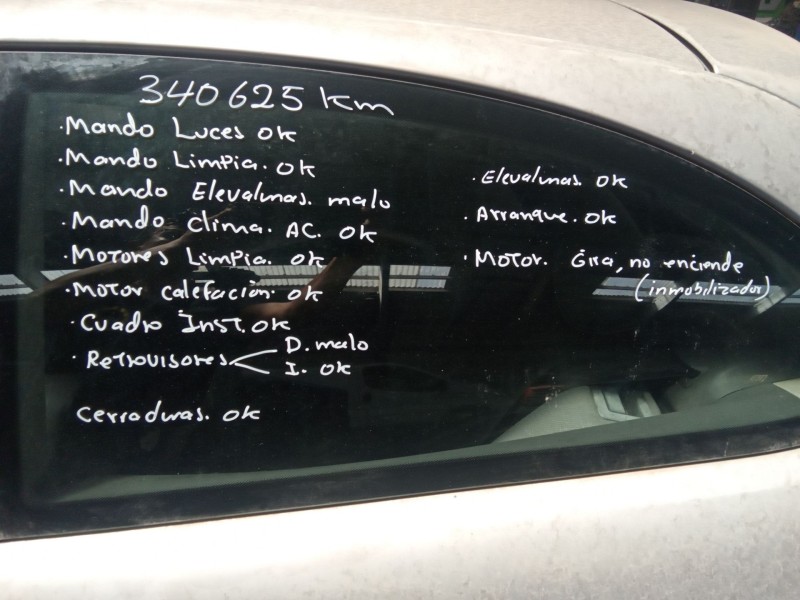 340625 Km
· Mando Luces OK
· Mando Limpia. OK
· Mando Elevalunas. malo
· Mando Clima. AC. OK
· Motores Limpia. OK
· Motor Calefación. OK
· Cuadro Inst. OK
· Retrovisores D. malo
I. OK
Cerraduras. OK
· Elevalunas. OK
· Arranque. OK
· Motor. Gira, no enciende
(inmobilizador)